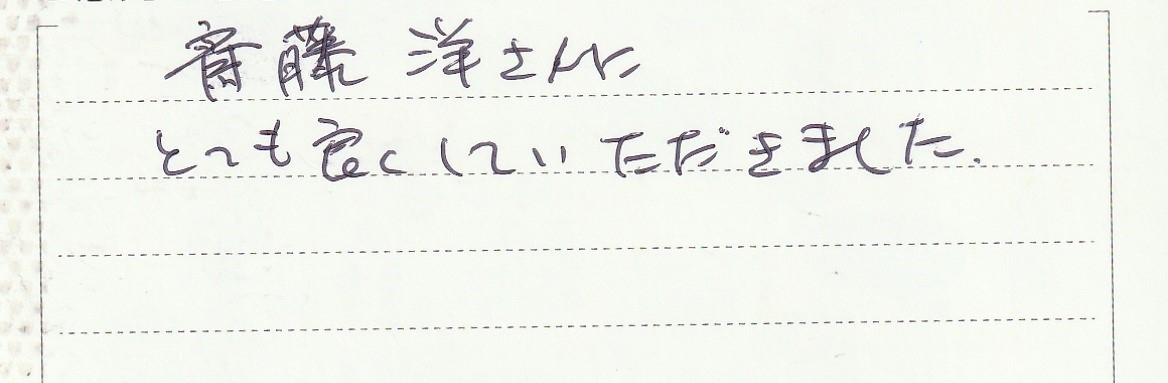 斉藤 洋さんに
とても良くしていただきました.